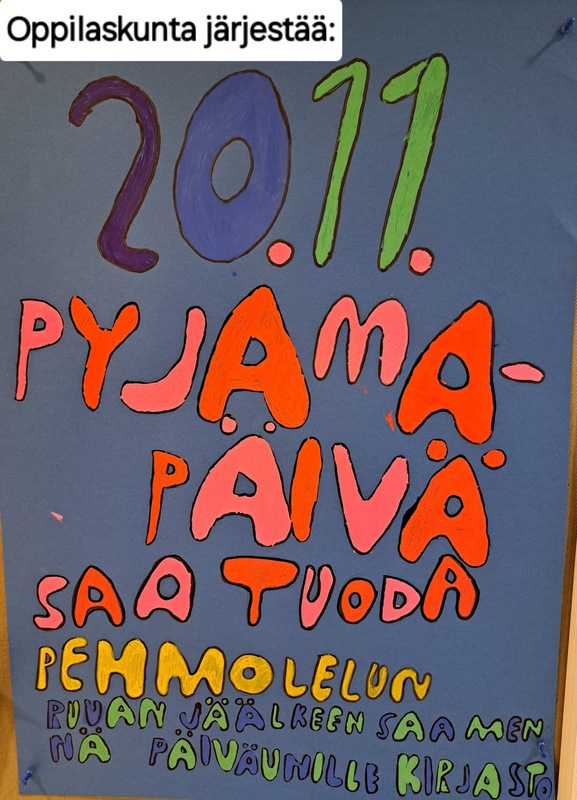 Oppilaskunta järjestää:
20.11.
PYJAMA-
PÄIVÄ
SAA TUODA
PEHMOLELUN
RUUAN JÄÄLKEEN SAA MEN
NÄ PÄIVÄUNILLE KIRJASTO